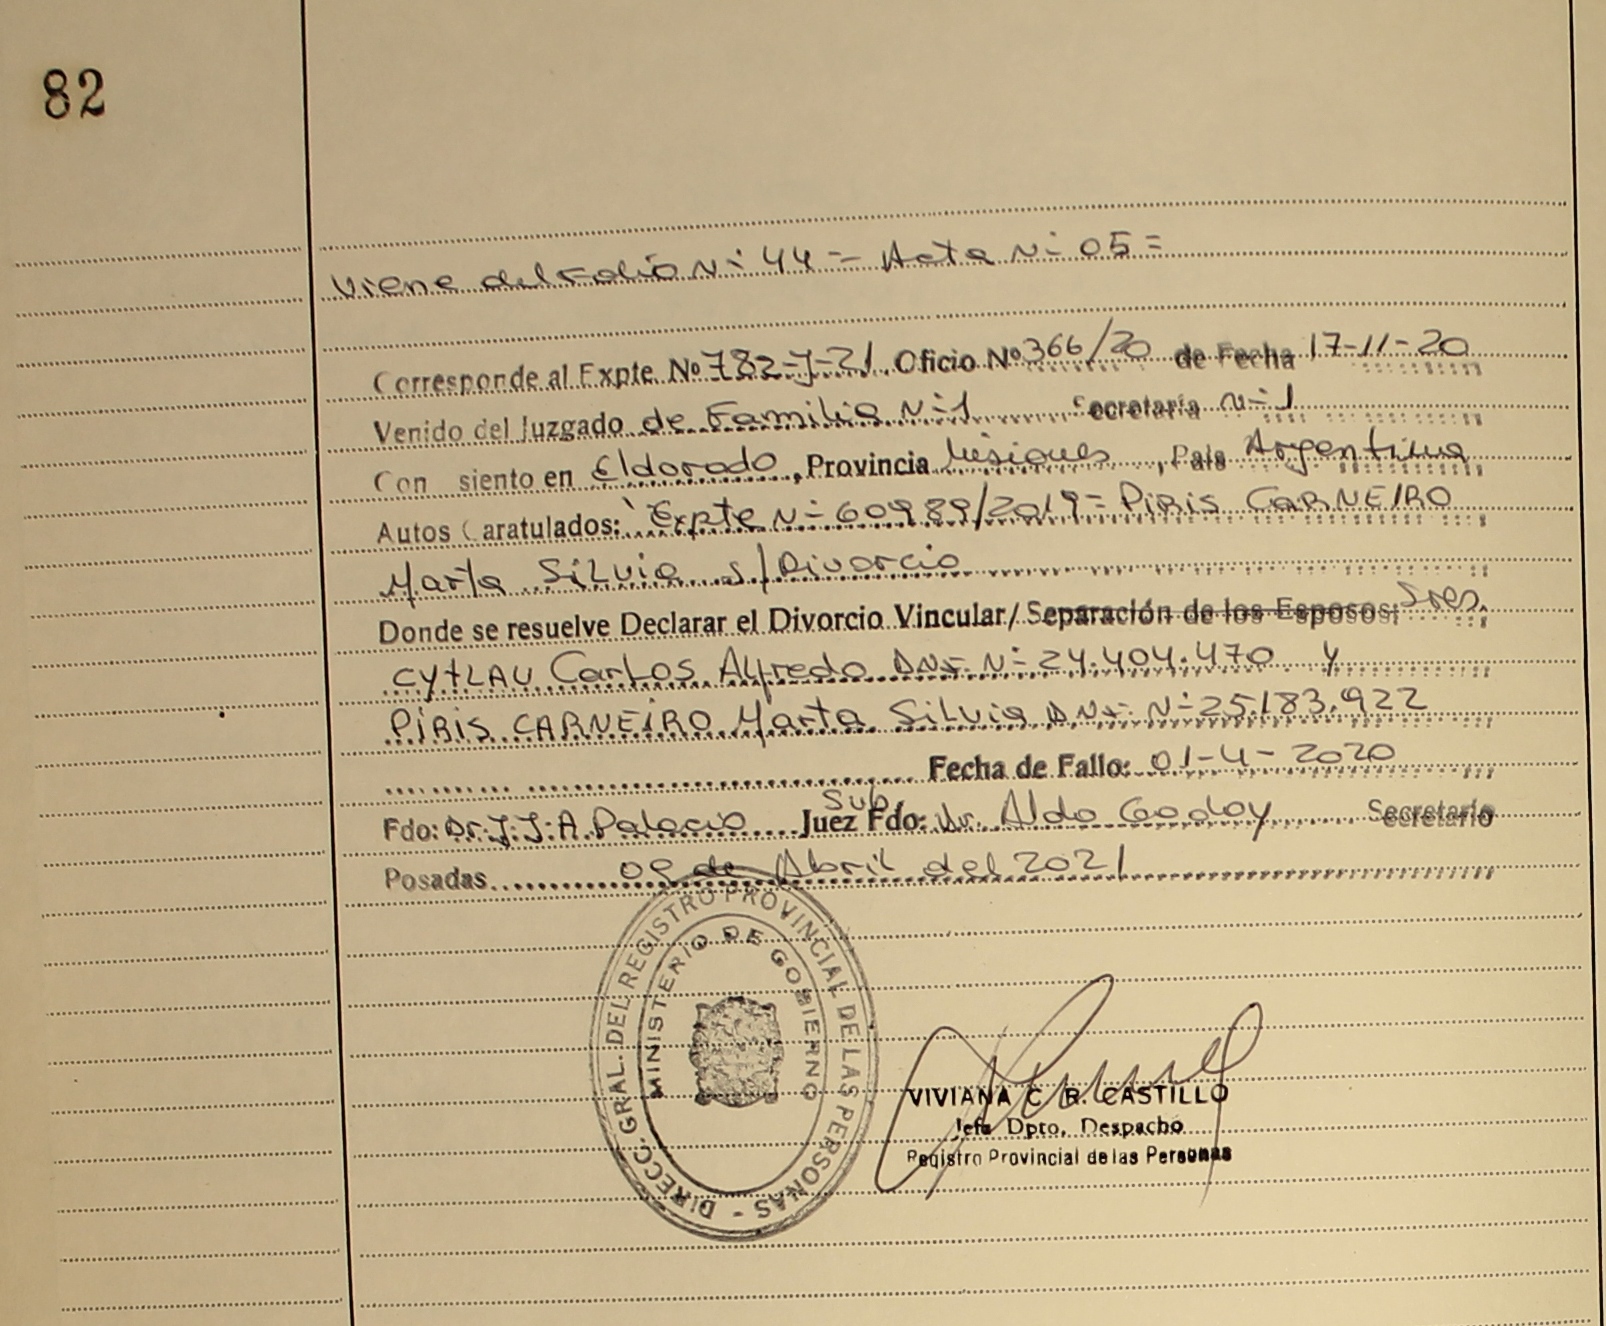 82
Viene del Folio N: 44 = Acta N: 05 =
Corresponde al Expte Nº 782-J-21. Oficio Nº 366/20 de Fecha 17-11-20
Venido del Juzgado de Familia N: 1 Secretaria N: 1
Con siento en Eldorado, Provincia Misiones, Pais Argentina
Autos Caratulados: "Expte N: 60989/2019 = PIRIS CARNEIRO
Marta Silvia s/Divorcio
Donde se resuelve Declarar el Divorcio Vincular/ Separación de los Esposos: Sres.
CYTLAU Carlos Alfredo DNI N: 24.404.470 y
PIRIS CARNEIRO Marta Silvia DNI N: 25.183.922
Fecha de Fallo: 01-4-2020
Fdo: Dr. J. J. A Palacio Juez Fdo: Sub. Dr. Aldo Godoy Secretario
Posadas 09 de Abril del 2021
DIRECC. GRAL. DEL REGISTRO PROVINCIAL DE LAS PERSONAS -
MINISTERIO DE GOBIERNO
VIVIANA C. R. CASTILLO
Jefa Dpto. Despacho
Registro Provincial de las Personas